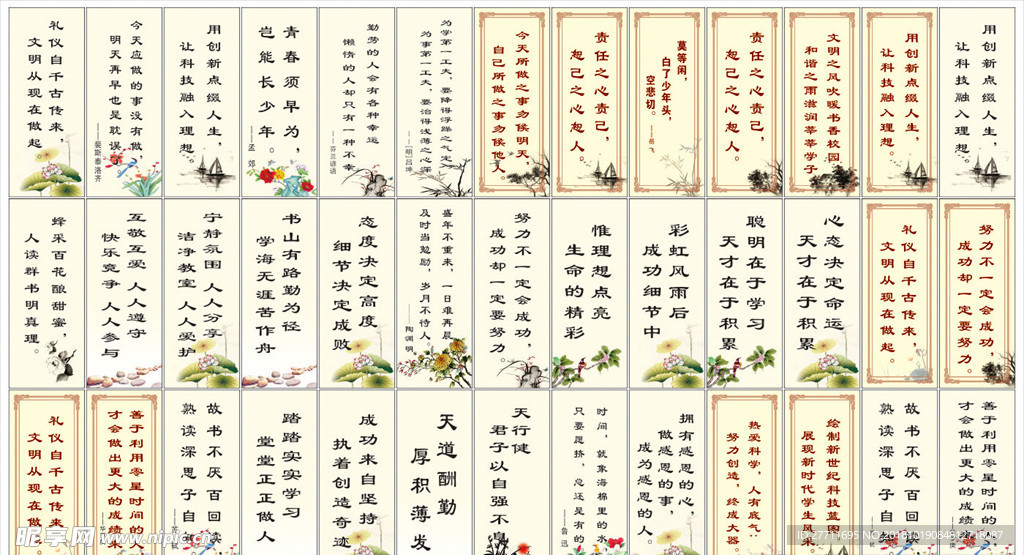 礼仪自千古传来，
文明从现在做起。
今天应做的事没有做，
明天再早也是耽误
——裴斯泰洛齐
用创新点缀人生，
让科技融入理想。
青春须早为，
岂能长少年。
——孟郊
勤劳的人会有各种幸运
懒惰的人却只有一种不幸
——芬兰谚语
为学第一工夫，要降得浮躁之气定
为事第一工夫，要治得浅薄之心深
——[明]吕坤
今天所做之事勿候明天，
自己所做之事勿候他人
责任之心责己，
恕己之心恕人。
莫等闲，
白了少年头，
空悲切。
——岳飞
责任之心责己，
恕己之心恕人。
文明之风吹暖书香校园
和谐之雨滋润莘莘学子
用创新点缀人生，
让科技融入理想。
用创新点缀人生，
让科技融入理想。
蜂采百花酿甜蜜，
人读群书明真理。
互敬互爱 人人遵守
快乐竞争 人人参与
宁静氛围 人人分享
洁净教室 人人爱护
书山有路勤为径
学海无涯苦作舟
态度决定高度
细节决定成败
盛年不重来，一日难再晨
及时当勉励，岁月不待人
——陶渊明
努力不一定会成功，
成功却一定要努力。
惟理想点亮
生命的精彩
彩虹风雨后
成功细节中
聪明在于学习
天才在于积累
心态决定命运
天才在于积累
礼仪自千古传来，
文明从现在做起。
努力不一定会成功，
成功却一定要努力。
礼仪自千古传来
文明从现在做
善于利用零星时间的人
才会做出更大的成绩
故书不厌百回
熟读深思子自
踏踏实实学习
堂堂正正做人
成功来自坚持
执着创造奇迹
天道酬勤
厚积薄发
天行健
君子以自强不息
时间，就象海绵里的水
只要愿挤，总还是有的
——鲁迅
拥有感恩的心，
做感恩的事，
成为感恩的人
热爱科学，人有底气，
努力创造，终成大器
绘制新世纪科技蓝图
展现新时代学生风采
故书不厌百回
熟读深思子自
善于利用零星时间的人
才会做出更大的成绩
昵享网 www.nipic.cn